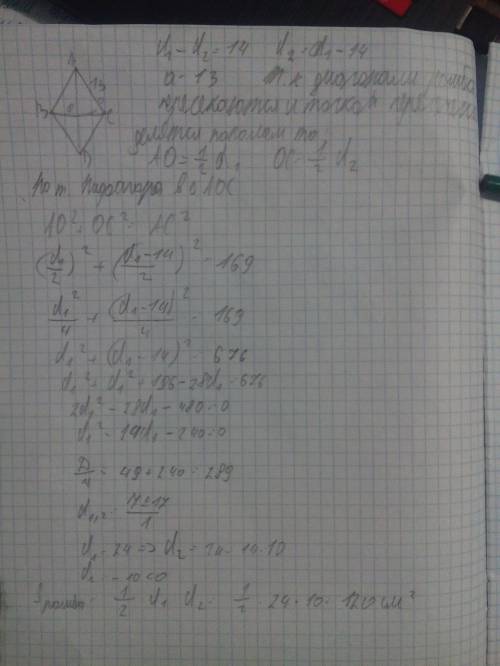 d₁ - d₂ = 14 d₂ = d₁ - 14
A
13
a = 13 т.к диагонали ромба
B O C
пересекаются и точкой пересечения
делятся пополам то
D
AO = 1/2 d₁ OC = 1/2 d₂
По т. Пифагора в △ AOC
AO² + OC² = AC²
(d₁/2)² + ((d₁ - 14)/2)² = 169
d₁²/4 + (d₁ - 14)²/4 = 169
d₁² + (d₁ - 14)² = 676
d₁² + d₁² + 196 - 28d₁ = 676
2d₁² - 28d₁ - 480 = 0
d₁² - 14d₁ - 240 = 0
D/4 = 49 + 240 = 289
d₁,₂ = (7 ± 17)/1
d₁ = 24 => d₂ = 24 - 14 = 10
d₂ = -10 < 0
S ромба = 1/2 d₁ d₂ = 1/2 · 24 · 10 = 120 см²